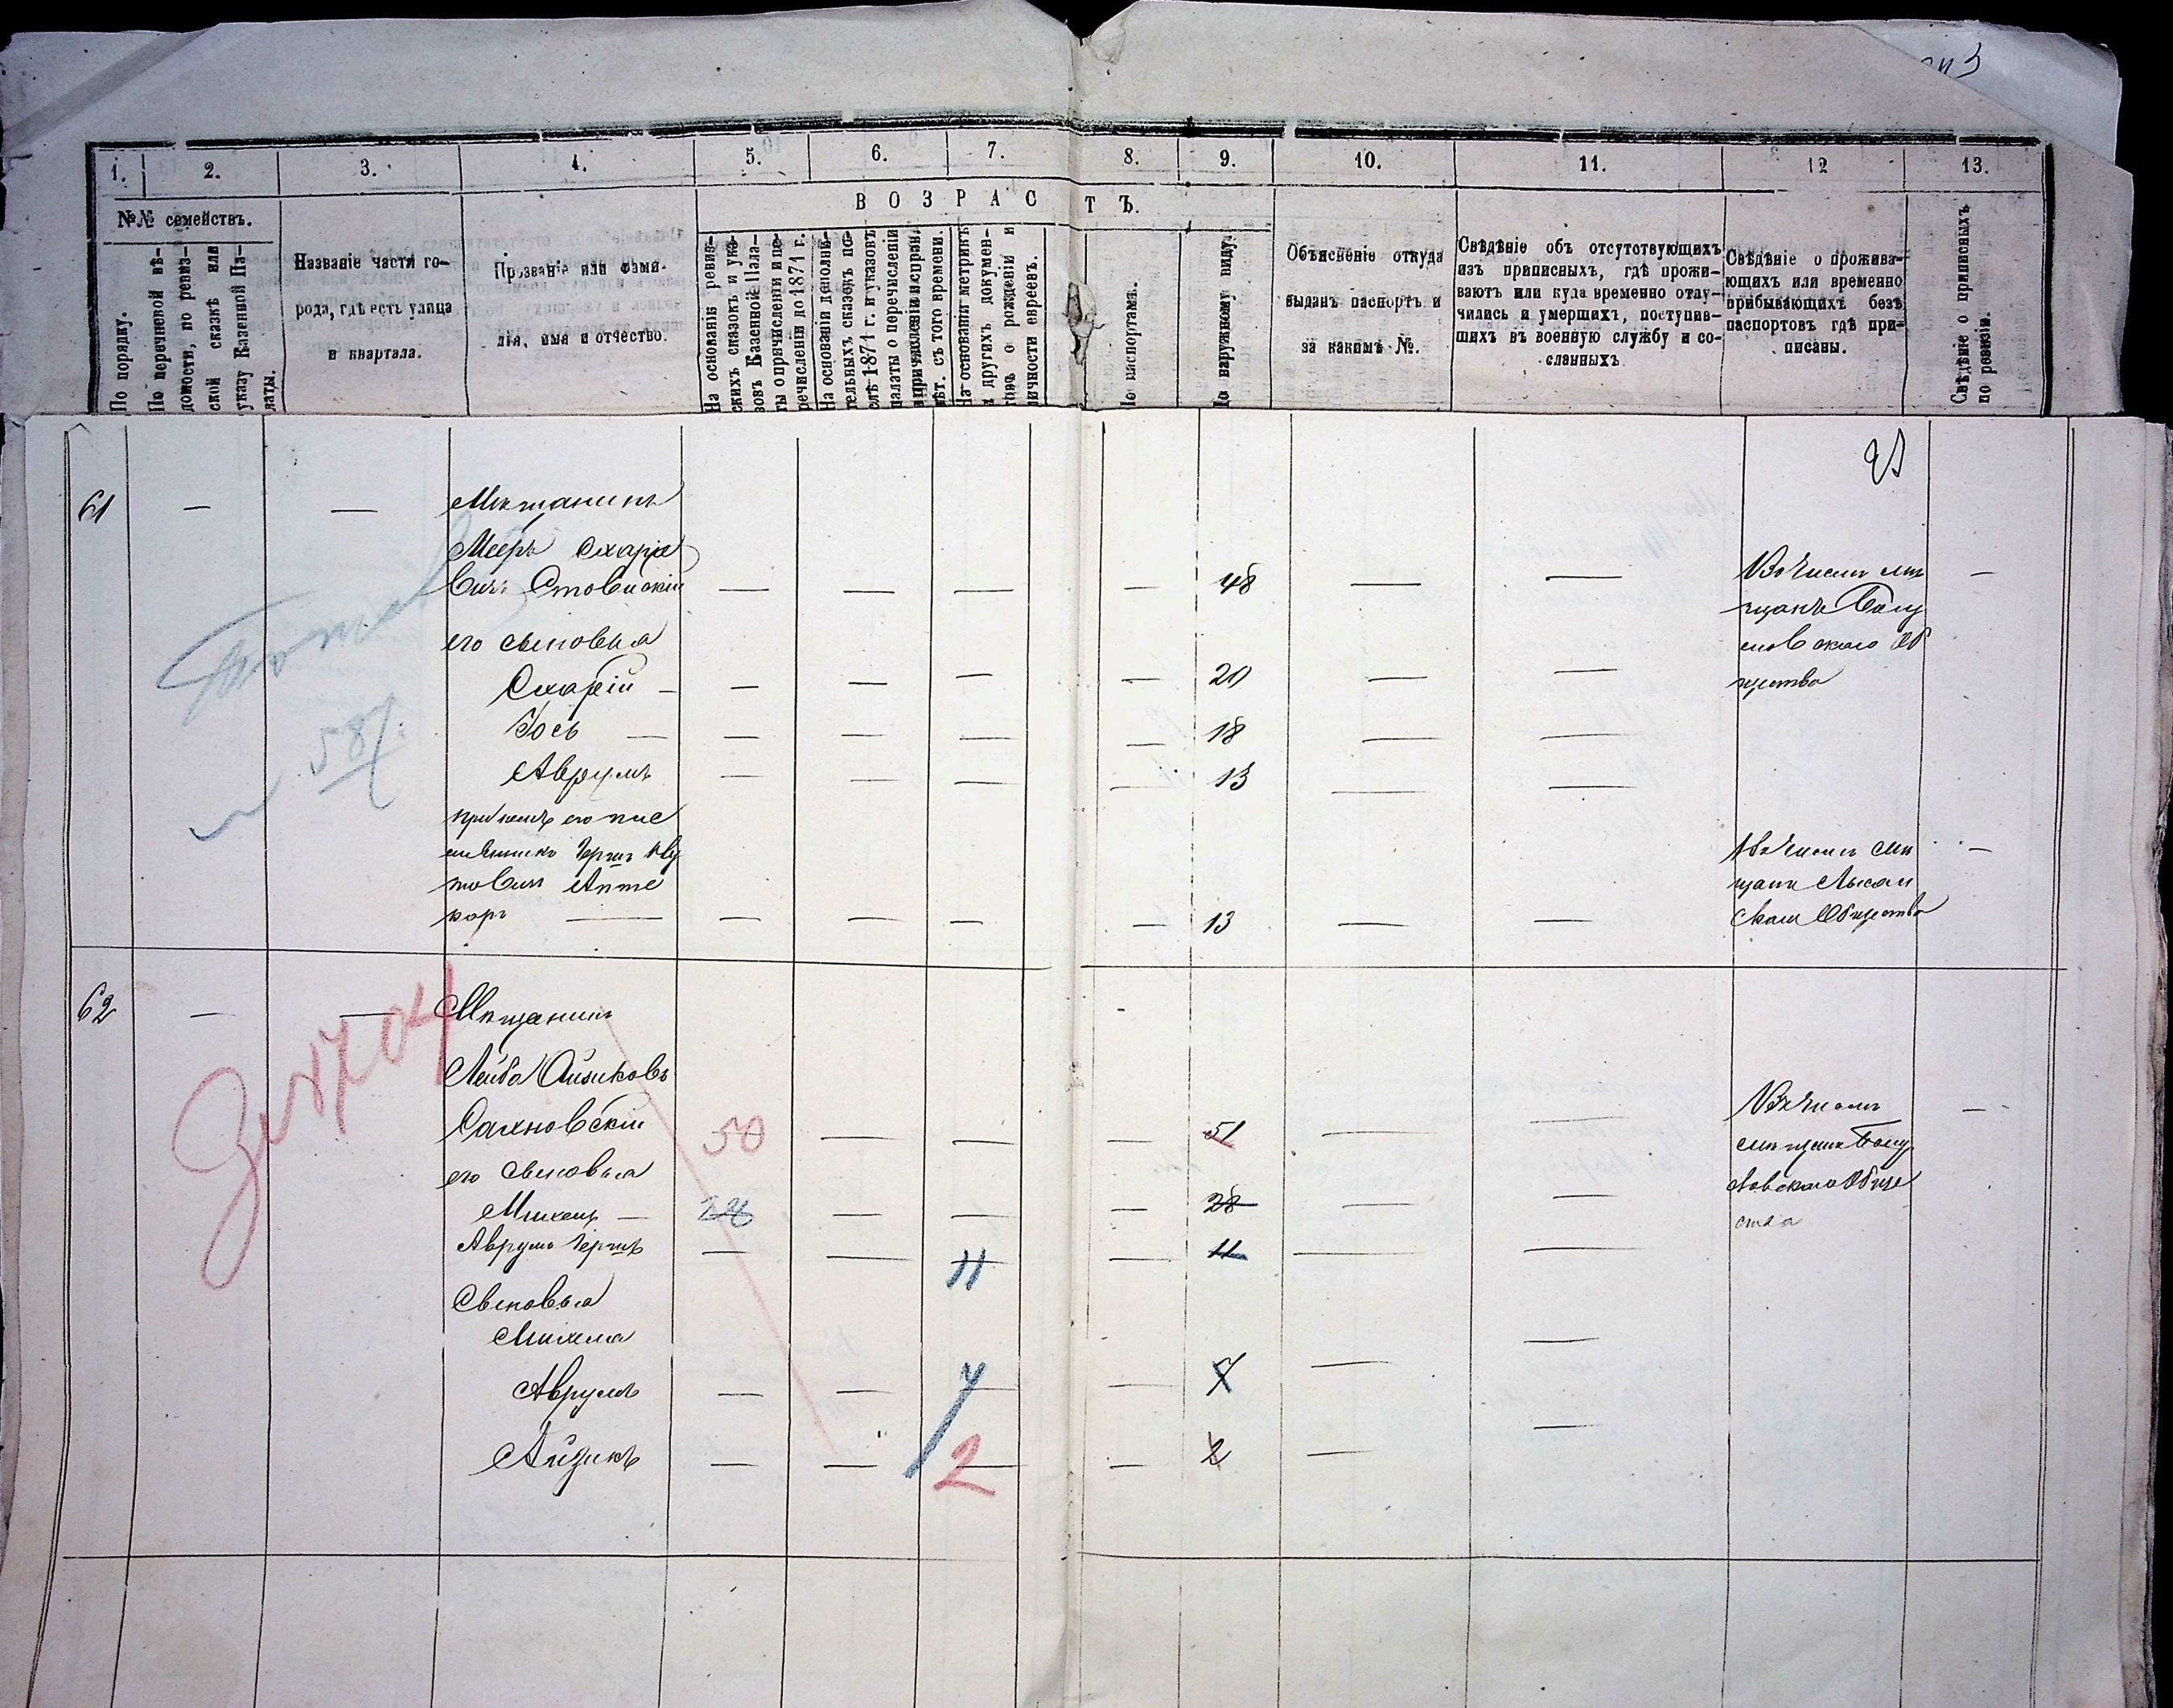 1. 2. 3. 4. 5. 6. 7. 8. 9. 10. 11. 12 13.
В О З Р А С Т Ъ.
№№ семействъ.
По порядку.
По перечневой вѣ-
домости, по ревиз-
ской сказкѣ или
указу Казенной Па-
латы.
Названіе части го-
рода, гдѣ есть улица
и квартала.
Прозваніе или фами-
лія, имя и отчество.
На основаніи ревиз-
скихъ сказокъ и ука-
зовъ Казенной Пала-
ты о причисленіи и пе-
речисленіи до 1871 г.
На основаніи дополни-
тельныхъ сказокъ по-
слѣ 1871 г. и указовъ
палаты о перечисленіи
и причисленіи и справ.
лѣт. съ того времени.
На основаніи метрикъ
и другихъ докумен-
товъ о рожденіи и
личности евреевъ.
По паспортамъ.
По наружному виду.
Объясненіе откуда
выданъ паспортъ и
за какимъ №.
Свѣдѣніе объ отсутствующихъ
изъ приписныхъ, гдѣ прожи-
ваютъ или куда временно отлу-
чились и умершихъ, поступив-
шихъ въ военную службу и со-
сланныхъ
Свѣдѣніе о прожива-
ющихъ или временно
прибывающихъ безъ
паспортовъ гдѣ при-
писаны.
Свѣдѣніе о приписныхъ
по ревизіи.
61 — — Мѣщанинъ
Мееръ Схаріе
вичъ Стовискій — — — — 48 — — —
Въ числѣ мѣ
щанъ
его сыновья
щества
Схарій — — — — — 20 — —
Іось — — — — — 18 — —
Аврумъ — — — — 13 — —
58
при немъ его пле
мянникъ Гершъ
Апте
каръ — — — — — 13 — — —
Въ числѣ мѣ
щанъ
Общества
62 — — Мѣщанинъ
Лейба Айзиковъ
Сахновскій 50 — — — 51 — — —
Въ числѣ
мѣщанъ
его сыновья
Михель — 28 — — — 28 — —
Аврумъ Гершъ — — 11 — 11 — —
Сыновья
Михеля —
Аврумъ — — 7 — 7 —
Айзикъ — — 2 — 2 — —